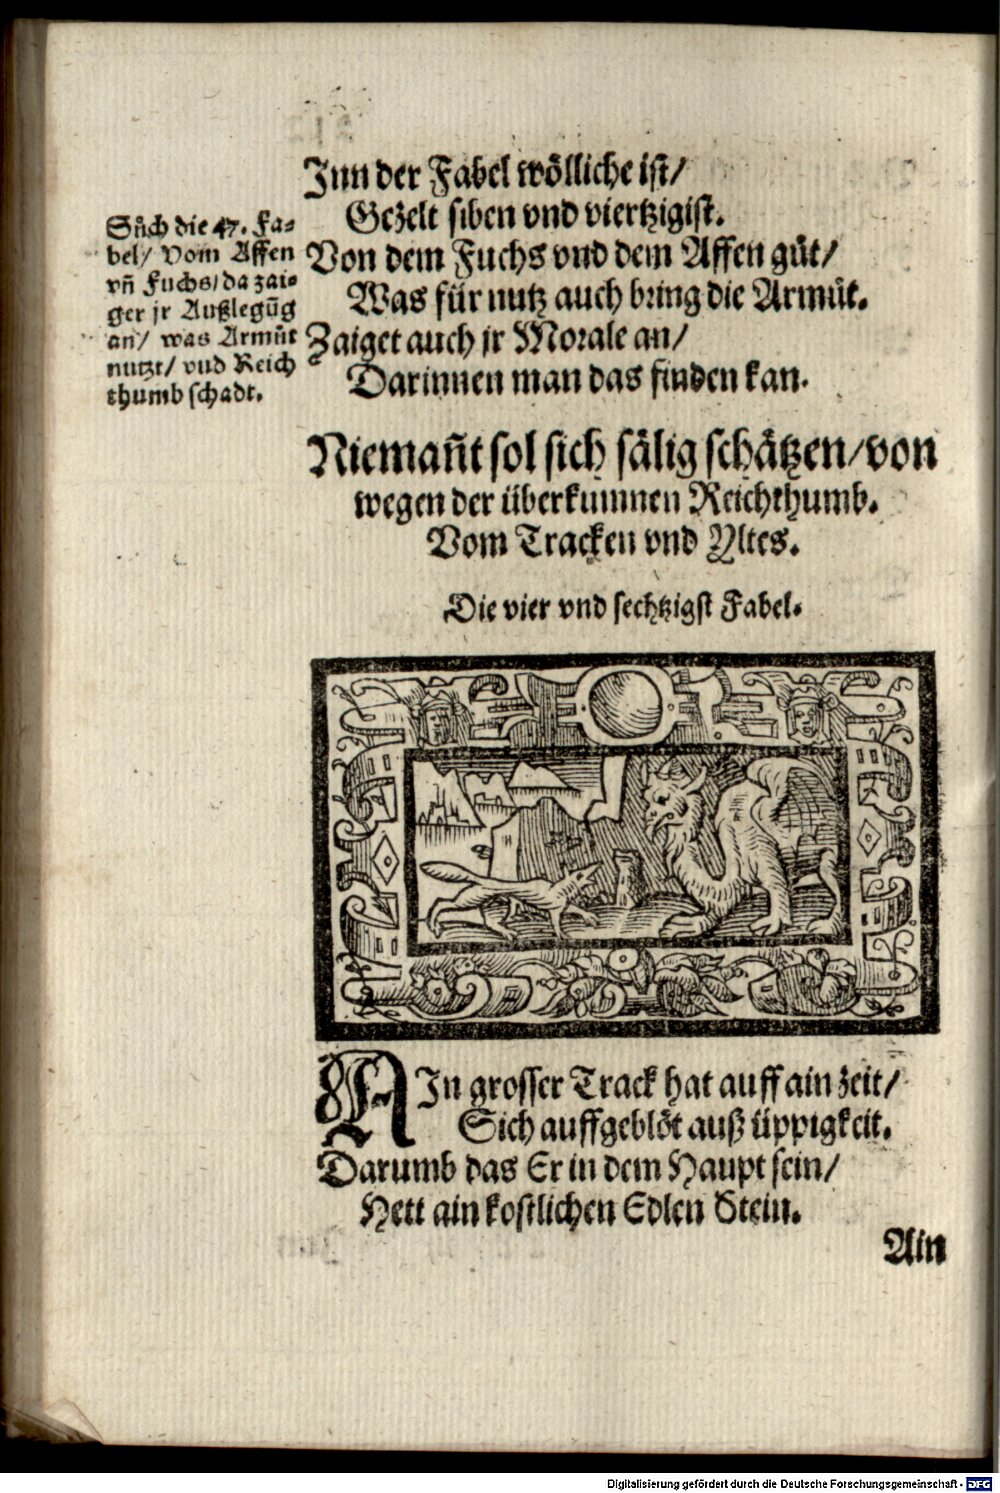 Inn der Fabel wölliche ist/
Gezelt siben vnd viertzigist.
Von dem Fuchs vnd dem Affen gůt/
Was für nutz auch bring die Armůt.
Zaiget auch jr Morale an/
Darinnen man das finden kan.
Sůch die 47. Fa-
bel/ Vom Affen
vñ Fuchs/ da zai-
ger jr Außlegũg
an/ was Armůt
nutzt/ vnd Reich
thumb schadt.
Niemañt sol sich sälig schätzen/ von
wegen der überkumnen Reichthumb.
Vom Tracken vnd Yltes.
Die vier vnd sechtzigst Fabel.
AIn grosser Track hat auff ain zeit/
Sich auffgeblöt auß üppigkeit.
Darumb das Er in dem Haupt sein/
Hett ain kostlichen Edlen Stein.
Ain
Digitalisierung gefördert durch die Deutsche Forschungsgemeinschaft - DFG